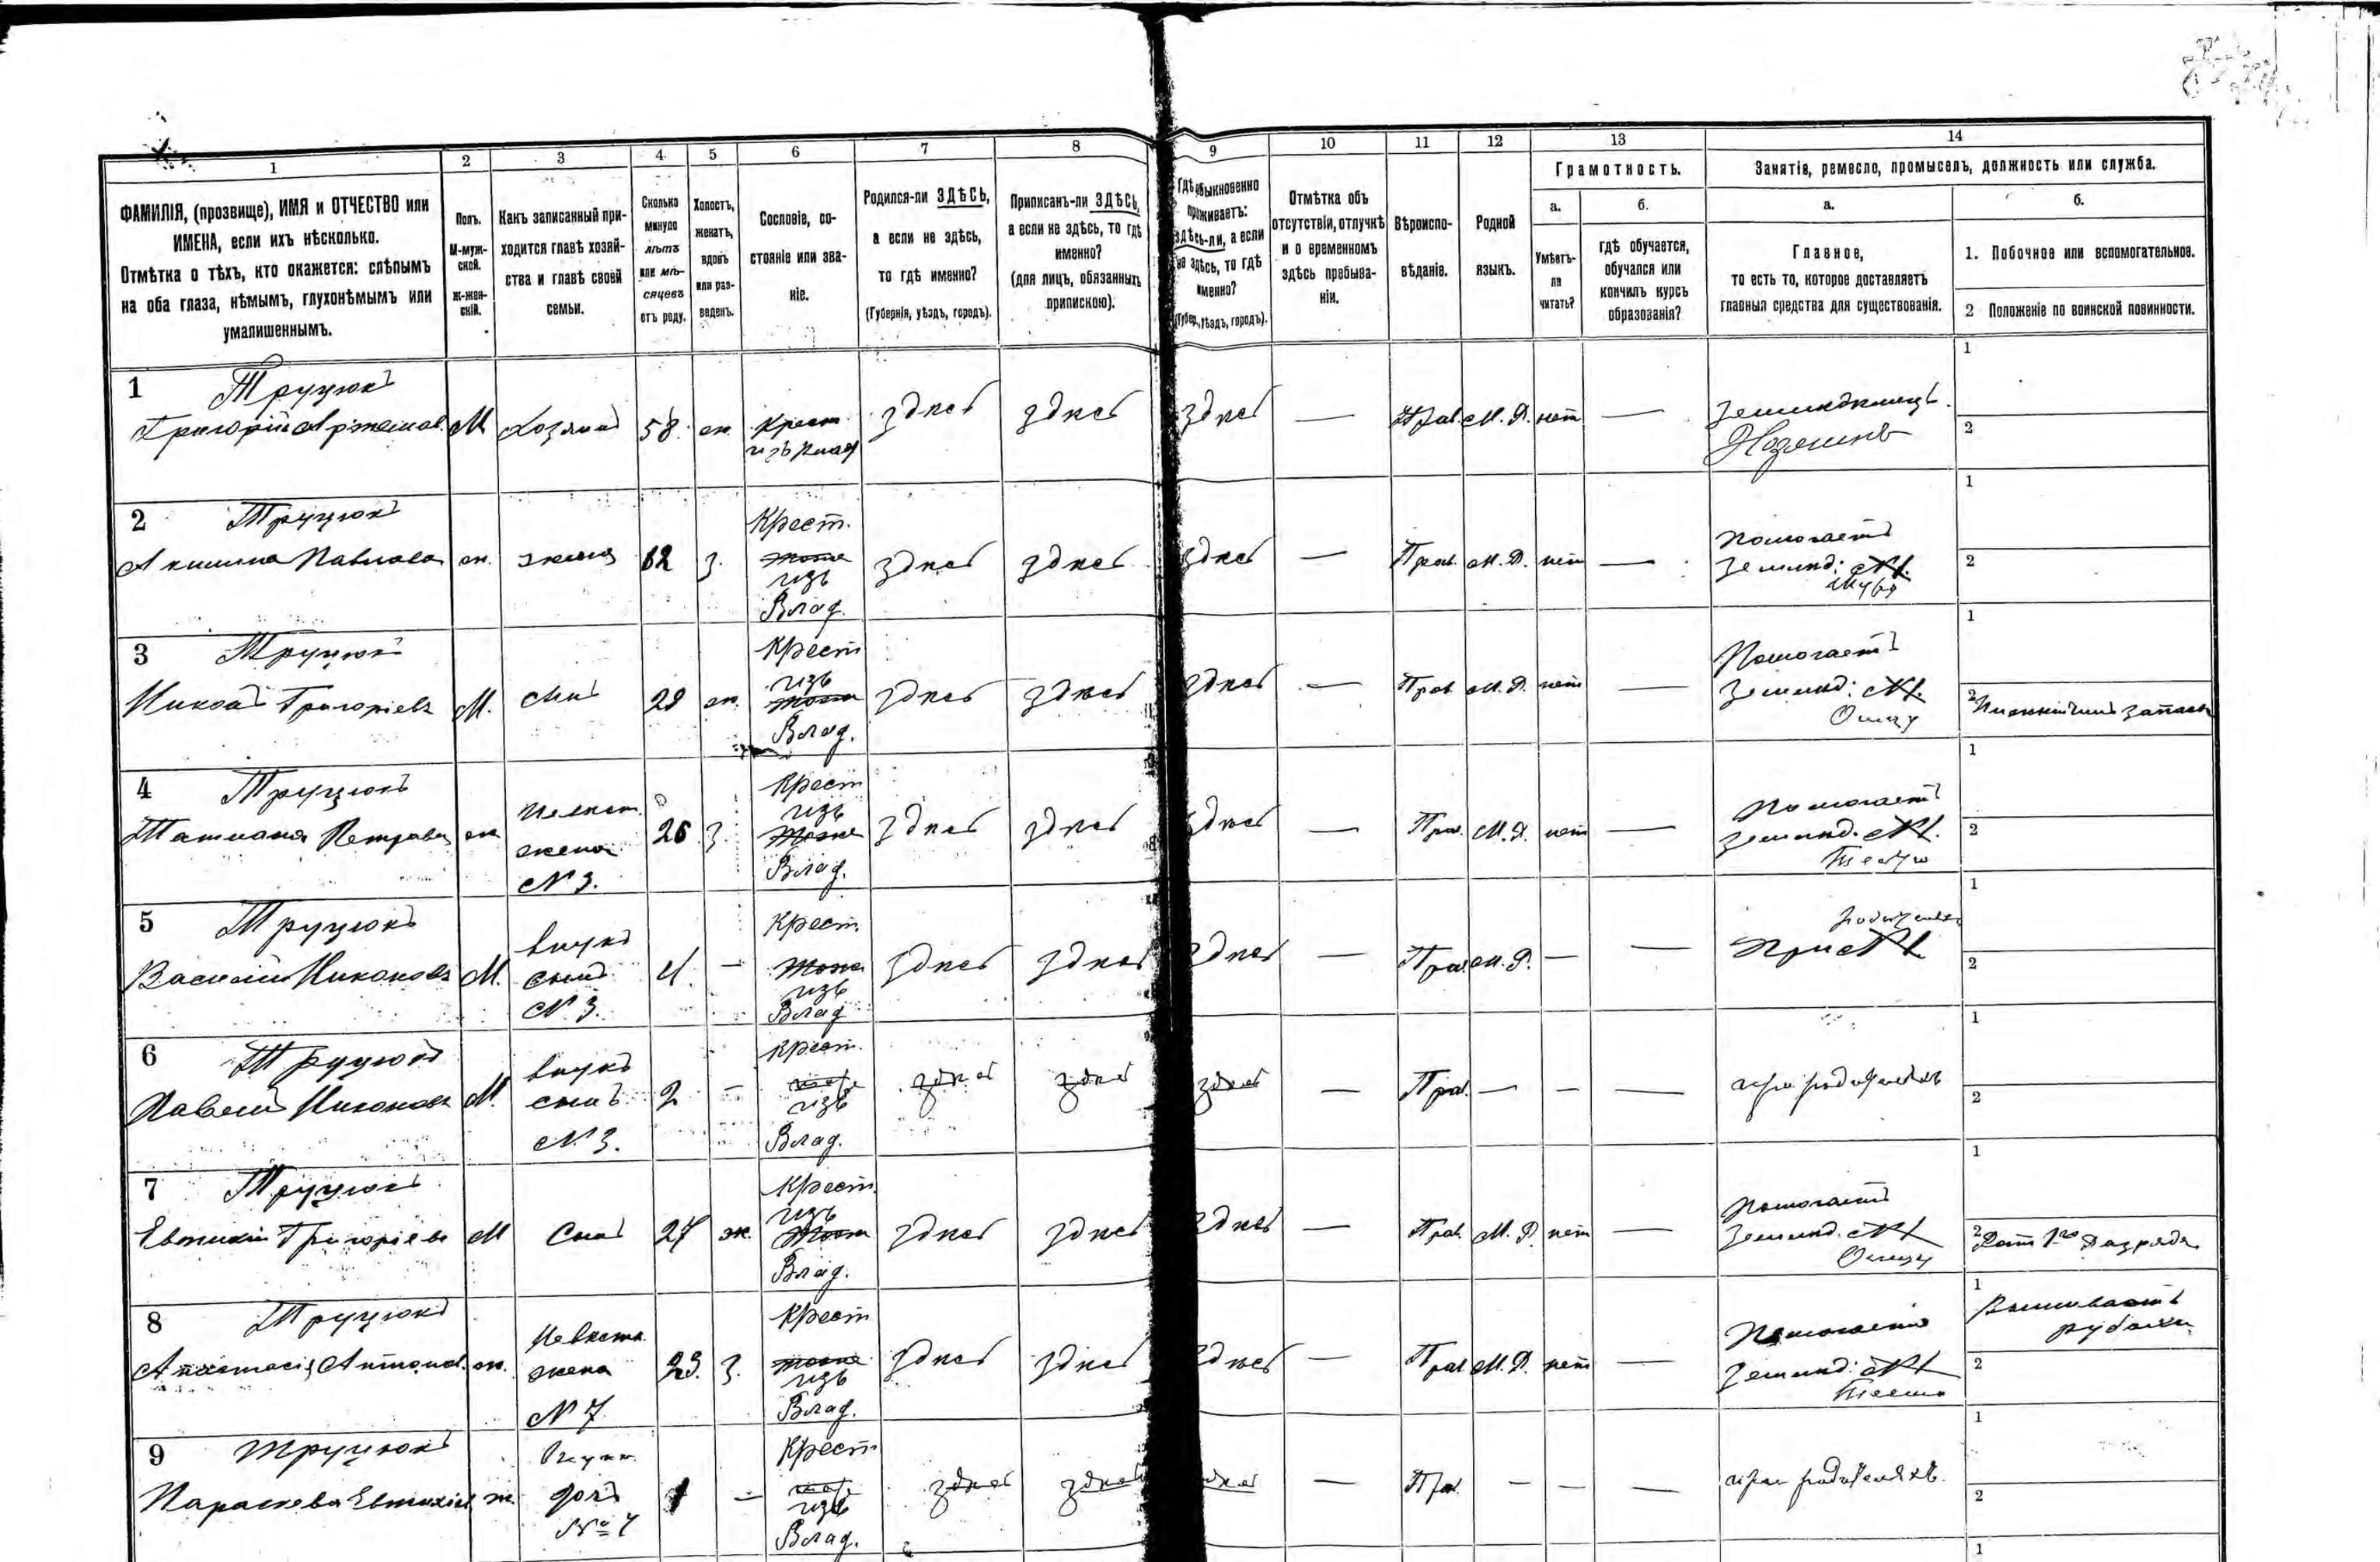 1 2 3 4 5 6 7 8 9 10 11 12 13 14
ФАМИЛІЯ, (прозвище), ИМЯ и ОТЧЕСТВО или
ИМЕНА, если ихъ нѣсколько.
Отмѣтка о тѣхъ, кто окажется: слѣпымъ
на оба глаза, нѣмымъ, глухонѣмымъ или
умалишеннымъ.
Полъ.
М-муж-
ской.
ж-жен-
скій.
Какъ записанный при-
ходится главѣ хозяй-
ства и главѣ своей
семьи.
Сколько
минуло
лѣтъ
или мѣ-
сяцевъ
отъ роду.
Холостъ,
женатъ,
вдовъ
или раз-
веденъ.
Сословіе, со-
стояніе или зва-
ніе.
Родился-ли ЗДѢСЬ,
а если не здѣсь,
то гдѣ именно?
(Губернія, уѣздъ, городъ).
Приписанъ-ли ЗДѢСЬ,
а если не здѣсь, то гдѣ
именно?
(для лицъ, обязанныхъ
припискою).
Гдѣ обыкновенно
проживаетъ:
здѣсь-ли, а если
не здѣсь, то гдѣ
именно?
(Губер., уѣздъ, городъ).
Отмѣтка объ
отсутствіи, отлучкѣ
и о временномъ
здѣсь пребыва-
ніи.
Вѣроиспо-
вѣданіе.
Родной
языкъ.
Грамотность.
а.
Умѣетъ-
ли
читать?
б.
гдѣ обучается,
обучался или
кончилъ курсъ
образованія?
Занятія, ремесло, промыселъ, должность или служба.
а.
Главное,
то есть то, которое доставляетъ
главныя средства для существованія.
б.
1. Побочное или вспомогательное.
2 Положеніе по воинской повинности.
1 Труцюкъ
Григорій Артемов. М Хозяинъ 58. ж. Крест. здѣсь здѣсь здѣсь — Прав. М. Р. нѣт — Земледѣлецъ.
изъ Влад
Хозяинъ
1
2
2 Труцюкъ
Акилина Павлова ж. жена 62 з. Крест. здѣсь здѣсь здѣсь — Прав. М. Р. нѣт — Помогаетъ
тоже
изъ
Влад.
Землед: №1.
Мужу
1
2
3 Труцюкъ
Никонъ Григоріевъ М. сынъ 29 ж. Крест здѣсь здѣсь здѣсь — Прав. М. Р. нѣт — Помогаетъ
изъ
тоже
Влад.
Землед: №1.
Отцу
1
2
4 Труцюкъ
Татіана Петрова ж Невѣст. 26 з. Крест здѣсь здѣсь здѣсь — Прав. М. Р. нѣт — Помогаетъ
жена
№ 3.
изъ
тоже
Влад.
землед. №1.
Тестю
1
2
5 Труцюкъ
Василій Никоновъ М. внукъ 4. — Крест здѣсь здѣсь здѣсь — Прав. М. Р. — —
сынъ
№ 3.
тоже
изъ
Влад
При №1
1
2
6 Труцюкъ
Павелъ Никоновъ М. внукъ 2 — Крест. здѣсь здѣсь здѣсь — Прав. — — — при родителяхъ
сынъ
№ 3.
изъ
Влад.
1
2
7 Труцюкъ
Евтихій Григоріевъ М Сынъ 27 ж. Крест. здѣсь здѣсь здѣсь — Прав. М. Р. нѣт — Помогаетъ
изъ
тоже
Влад.
Землед. №1
Отцу
1
2 Рат 1го Разряда
8 Труцюкъ
Анастасія Антонов. ж. Невѣстка 23. з. Крест здѣсь здѣсь здѣсь — Прав М. Р. нѣт — Помогаетъ
жена
№ 7.
тоже
изъ
Влад.
Землед: №1
1 Вышиваетъ
рубахи
2
9 Труцюкъ
Параскева Евтихіев ж. Внучк. 1 — Крест здѣсь здѣсь здѣсь — Прав. — — — при родителяхъ.
дочь
№ 7
изъ
Влад.
1
2
1